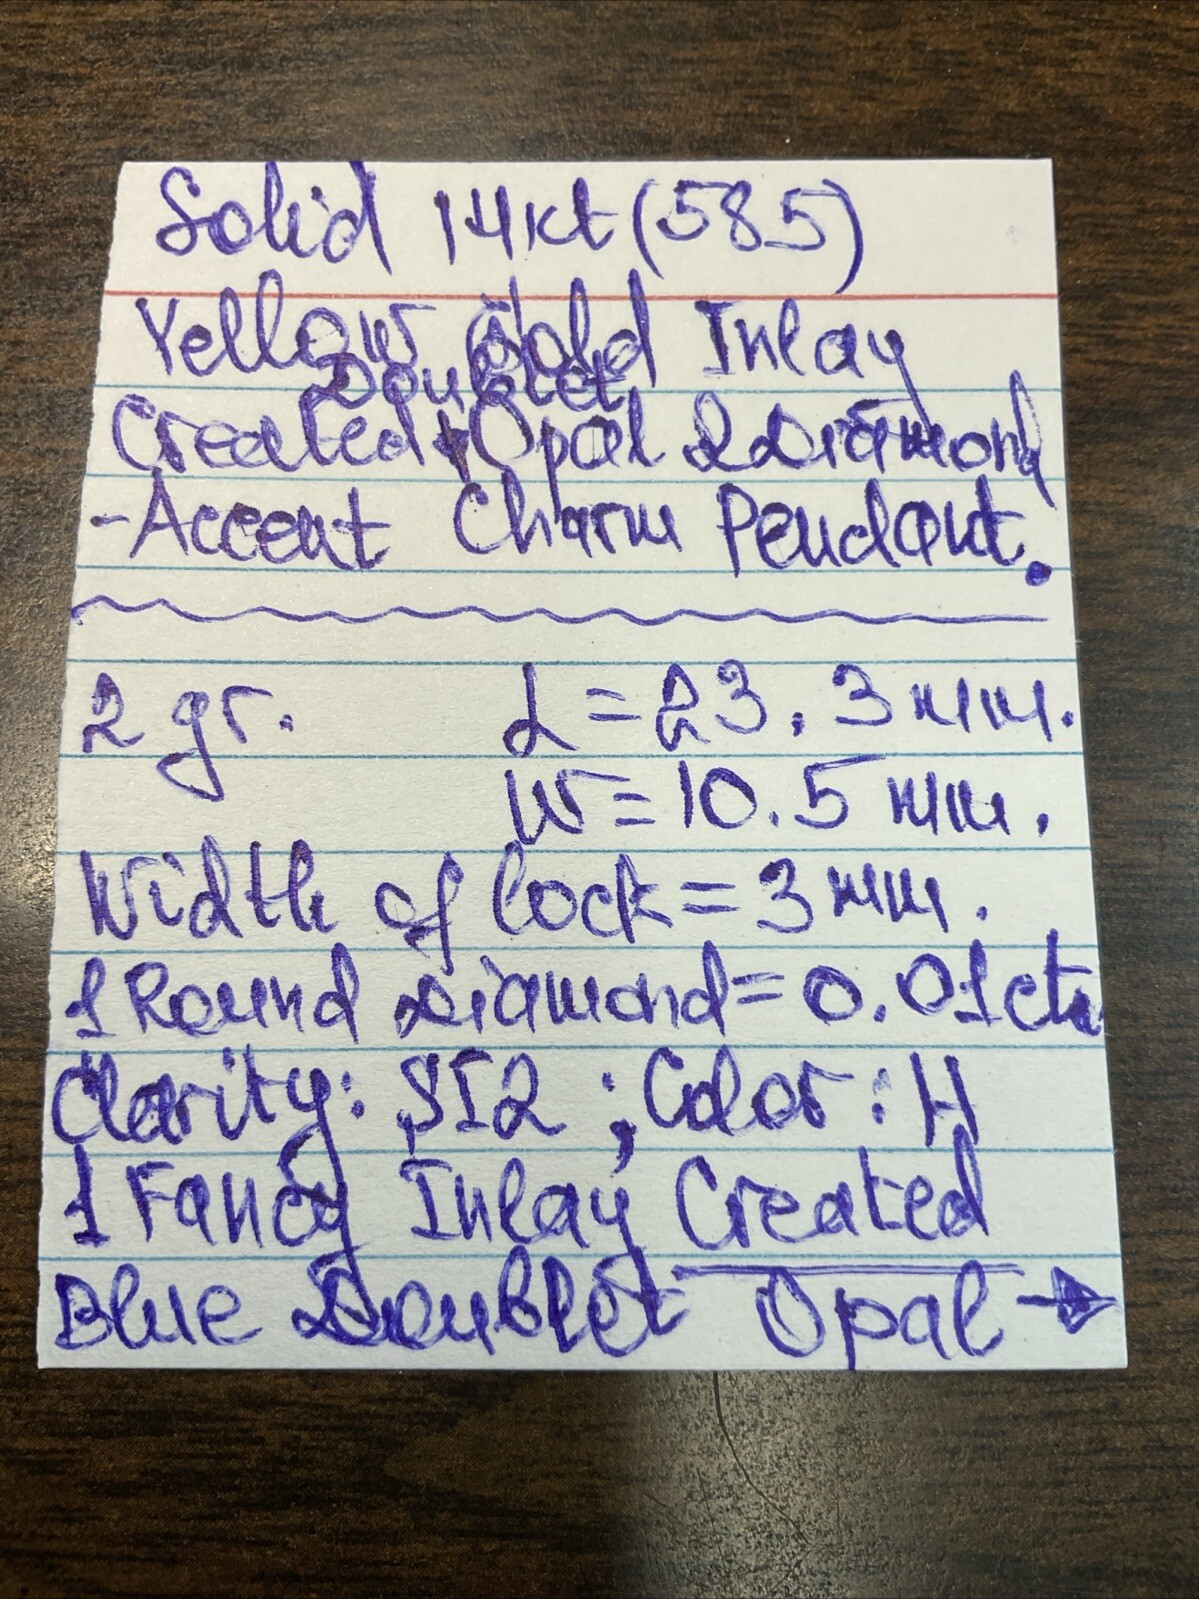 Solid 14kt (585)
Yellow Gold Inlay
Doublet
Created Opal & Diamond
-Accent Charm Pendant.
2 gr. L=23.3mm.
W=10.5mm.
Width of lock=3mm.
1 Round Diamond=0.01ct
Clarity: SI2 ; Color: H
1 Fancy Inlay Created
Blue Doublet Opal →